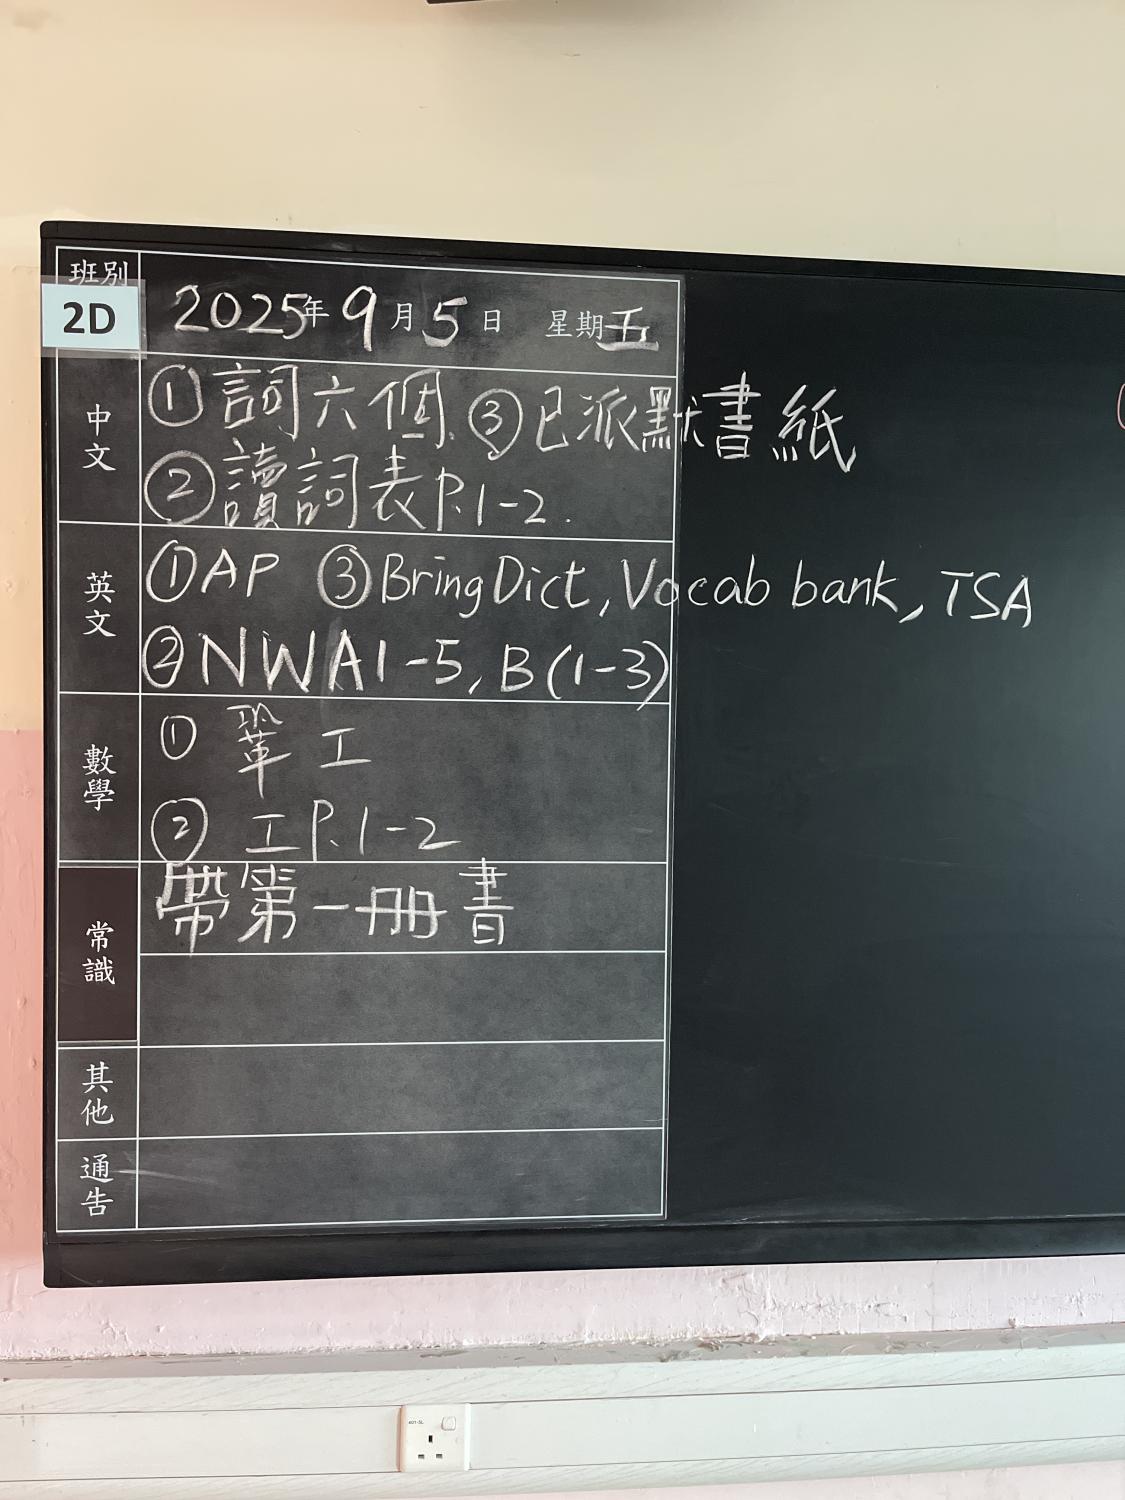 班別
2D
2025年9月5日 星期五
中文
①詞六個 ③已派默書紙
②讀詞表P.1-2.
英文
①AP ③Bring Dict, Vocab bank, TSA
②NWA1-5, B(1-3)
數學
① 鞏工
② 工P.1-2
常識
帶第一冊書
其他
通告